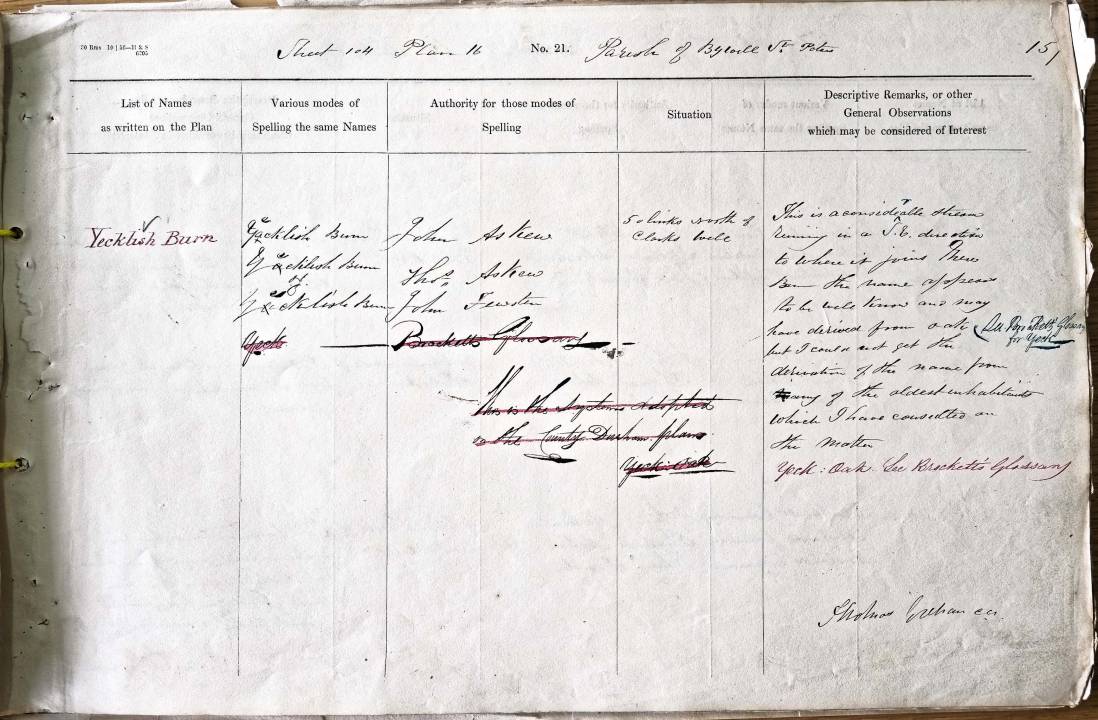 20 Rms 10 | 56—H & S
6705
Sheet 104 Plan 16 No. 21. Parish of Bywell St Peters 151
List of Names
as written on the Plan
Various modes of
Spelling the same Names
Authority for those modes of
Spelling
Situation
Descriptive Remarks, or other
General Observations
which may be considered of Interest
Yecklish Burn
Yacklish Burn
John Askew
50 links north of
Clarks Well
Yacklish Burn
Thos. Askew
Yecklish Burn
John Fewster
Yeck
Brocketts Glossary
This is the system adopted
in the County Durham plans
Yeck: oak
This is a considerable stream
runing in a S.E. direction
to where it joins
Burn the name appears
to be well know and may
have derived from oak
but I could not get the
derivation of the name from
any of the oldest inhabitants
which I have consulted on
the matter
See Brocketts Glossary
for Yeck
Yeck: Oak. See Brockett's Glossary
Thomas